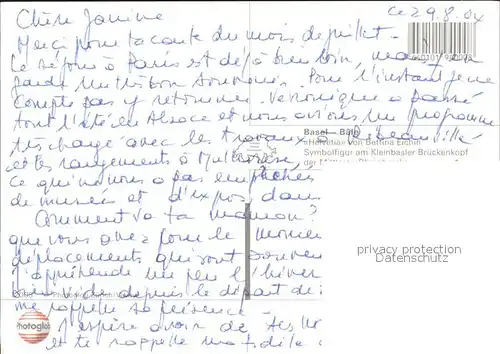 Chère Janine
Ce 29.8.04
Merci pour ta carte du mois de juillet.
Le séjour à Paris est déjà bien loin, mais j'en
garde un très bon souvenir. Pour l'instant je ne
compte pas y retourner. Véronique a passé
tout l'été en Alsace et nous avions un programme
très chargé avec les travaux à Ribeauvillé
et les rangements à Mulhouse
ce qui ne nous a pas empêchés
de musées et d'expos dans
Comment va ta maman?
que vous avez pour le moment
déplacements qui sont souvent
J'appréhende un peu l'hiver
bien vide depuis le départ de
me rappelle sa présence
J'espère avoir de tes
et te rappelle ma fidèle
Basel - Bâle
«Helvetia» von Bettina Eichin
Symbolfigur am Kleinbasler Brückenkopf
der
privacy protection
watermark for DelCampe
Photoglob